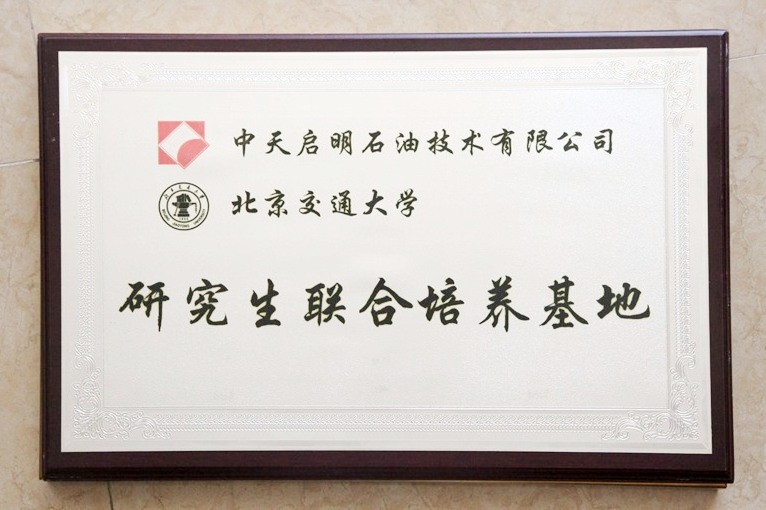 中天启明石油技术有限公司
北京交通大学
研究生联合培养基地